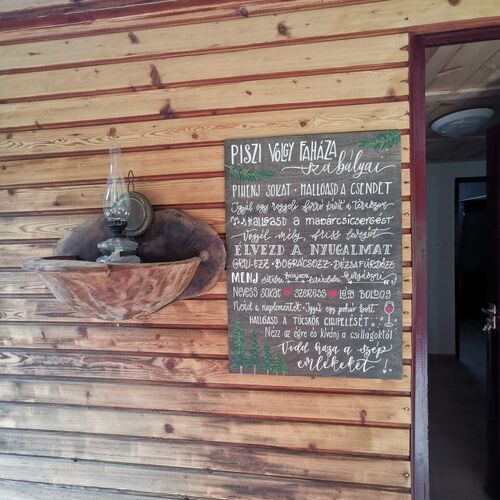 PISZI VÖLGY FAHÁZA
szabályai
PIHENJ SOKAT • HALLGASD A CSENDET
Igyál egy reggeli forró kávét a teraszon
HALLGASD A MADÁRCSICSERGÉST
Vegyél mély, friss levegőt
ÉLVEZD A NYUGALMAT
GRILLEZZ • BOGRÁCSOZZ • DÉZSAFÜRDŐZZ
MENJ sétálni, bicajozni, kirándulni,
NEVESS SOKAT ♥ SZERESS ♥ LÉGY BOLDOG
Nézd a naplementét • Igyál egy pohár bort
HALLGASD A TÜCSKÖK CIRIPELÉSÉT
Nézz az égre és kívánj a csillagoktól
Vidd haza a szép
emlékeket!